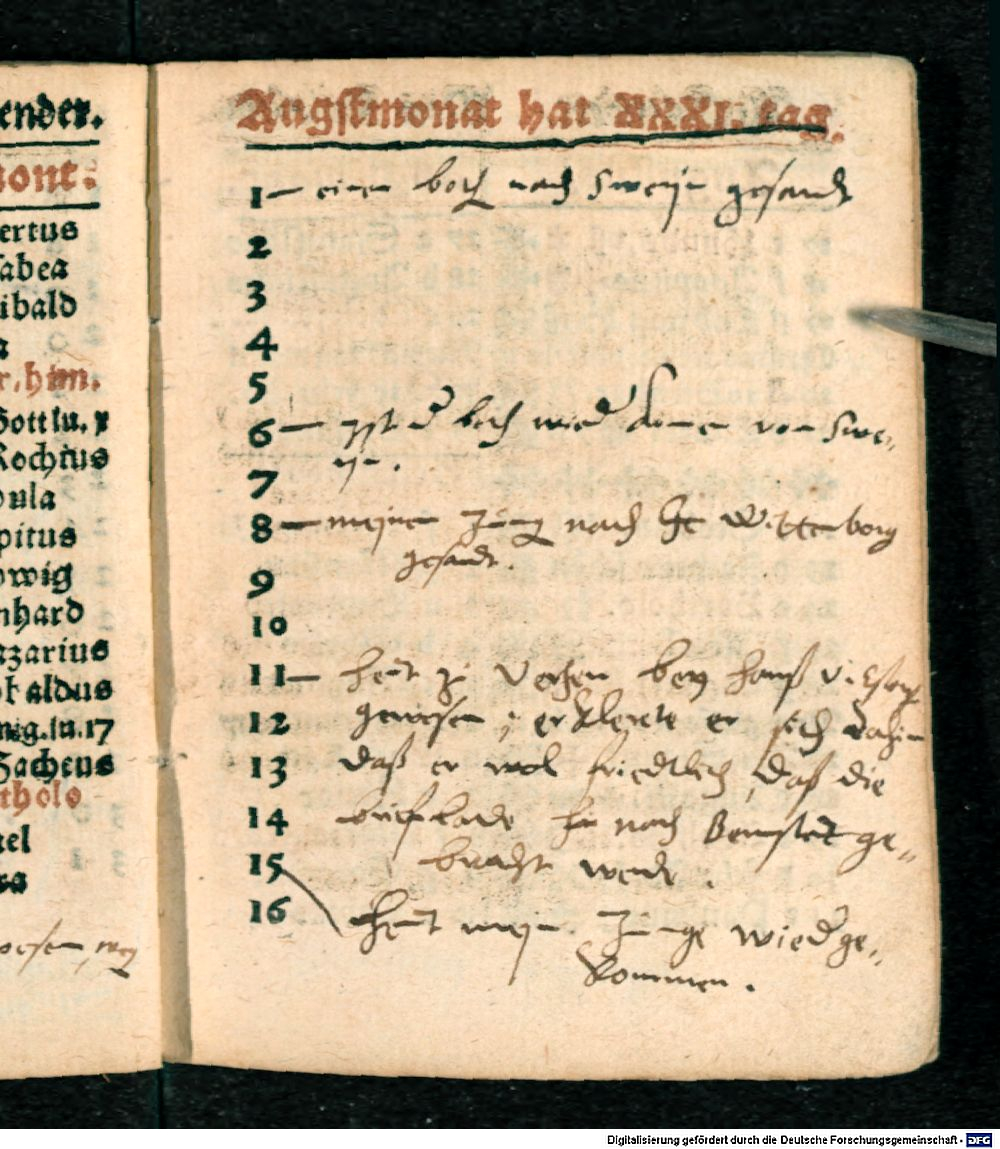 ender.
mont.
ertus
sabea
ibald
a
r. him.
Gott lu. x
Rochius
bula
pitus
owig
nhard
azarius
baldus
nig. lu. 17
Zacheus
tholo
el
ra
wesen, 
Augstmonat hat XXXI. tag.
1 – einen both nach Sweryn gesandt
2
3
4
5
6 – yst d both wied komen von Swe-
ryn.
7
8 – meinen Jung nach Wittenborg
gesandt.
9
10
11 – heut zu bey Hanß v.
12 gewesen, erklerte er sich dahin
13 daß er wol friedtlich, daß die
14 briefkade nach ge-
15 bracht werde.
16 heut meyn Junge wied ge-
kommen.
Digitalisierung gefördert durch die Deutsche Forschungsgemeinschaft - DFG